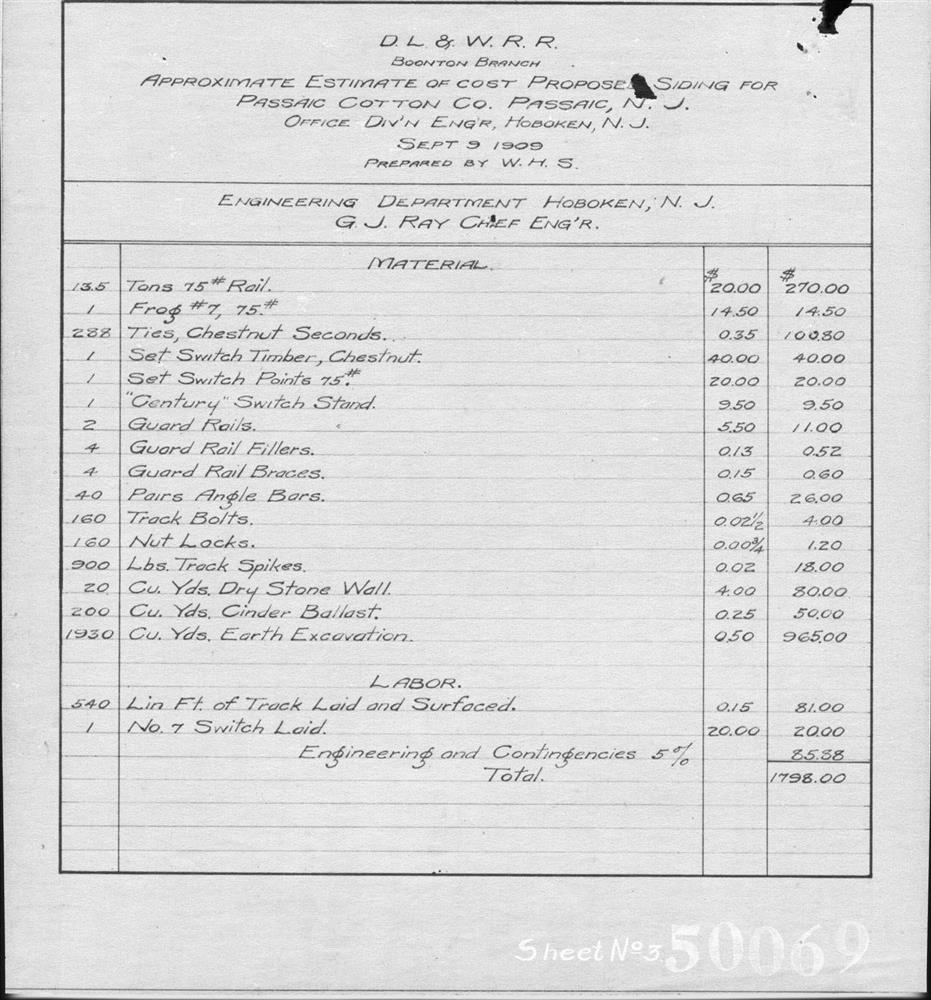 D. L. & W. R. R.
BOONTON BRANCH
APPROXIMATE ESTIMATE OF COST PROPOSED SIDING FOR
PASSAIC COTTON CO. PASSAIC, N. J.
OFFICE DIV'N ENG'R, HOBOKEN, N. J.
SEPT 9 1909
PREPARED BY W. H. S.
ENGINEERING DEPARTMENT HOBOKEN, N. J.
G. J. RAY CHIEF ENG'R.
MATERIAL.
13.5 Tons 75# Rail. $20.00 $270.00
1 Frog #7, 75.# 14.50 14.50
288 Ties, Chestnut Seconds. 0.35 100.80
1 Set Switch Timber, Chestnut. 40.00 40.00
1 Set Switch Points 75.# 20.00 20.00
1 "Century" Switch Stand. 9.50 9.50
2 Guard Rails. 5.50 11.00
4 Guard Rail Fillers. 0.13 0.52
4 Guard Rail Braces. 0.15 0.60
40 Pairs Angle Bars. 0.65 26.00
160 Track Bolts. 0.02½ 4.00
160 Nut Locks. 0.00¾ 1.20
900 Lbs. Track Spikes. 0.02 18.00
20 Cu. Yds. Dry Stone Wall. 4.00 80.00
200 Cu. Yds. Cinder Ballast. 0.25 50.00
1930 Cu. Yds. Earth Excavation. 0.50 965.00
LABOR.
540 Lin Ft. of Track Laid and Surfaced. 0.15 81.00
1 No. 7 Switch Laid. 20.00 20.00
Engineering and Contingencies 5% 85.88
Total. 1798.00
Sheet No 3. 50069